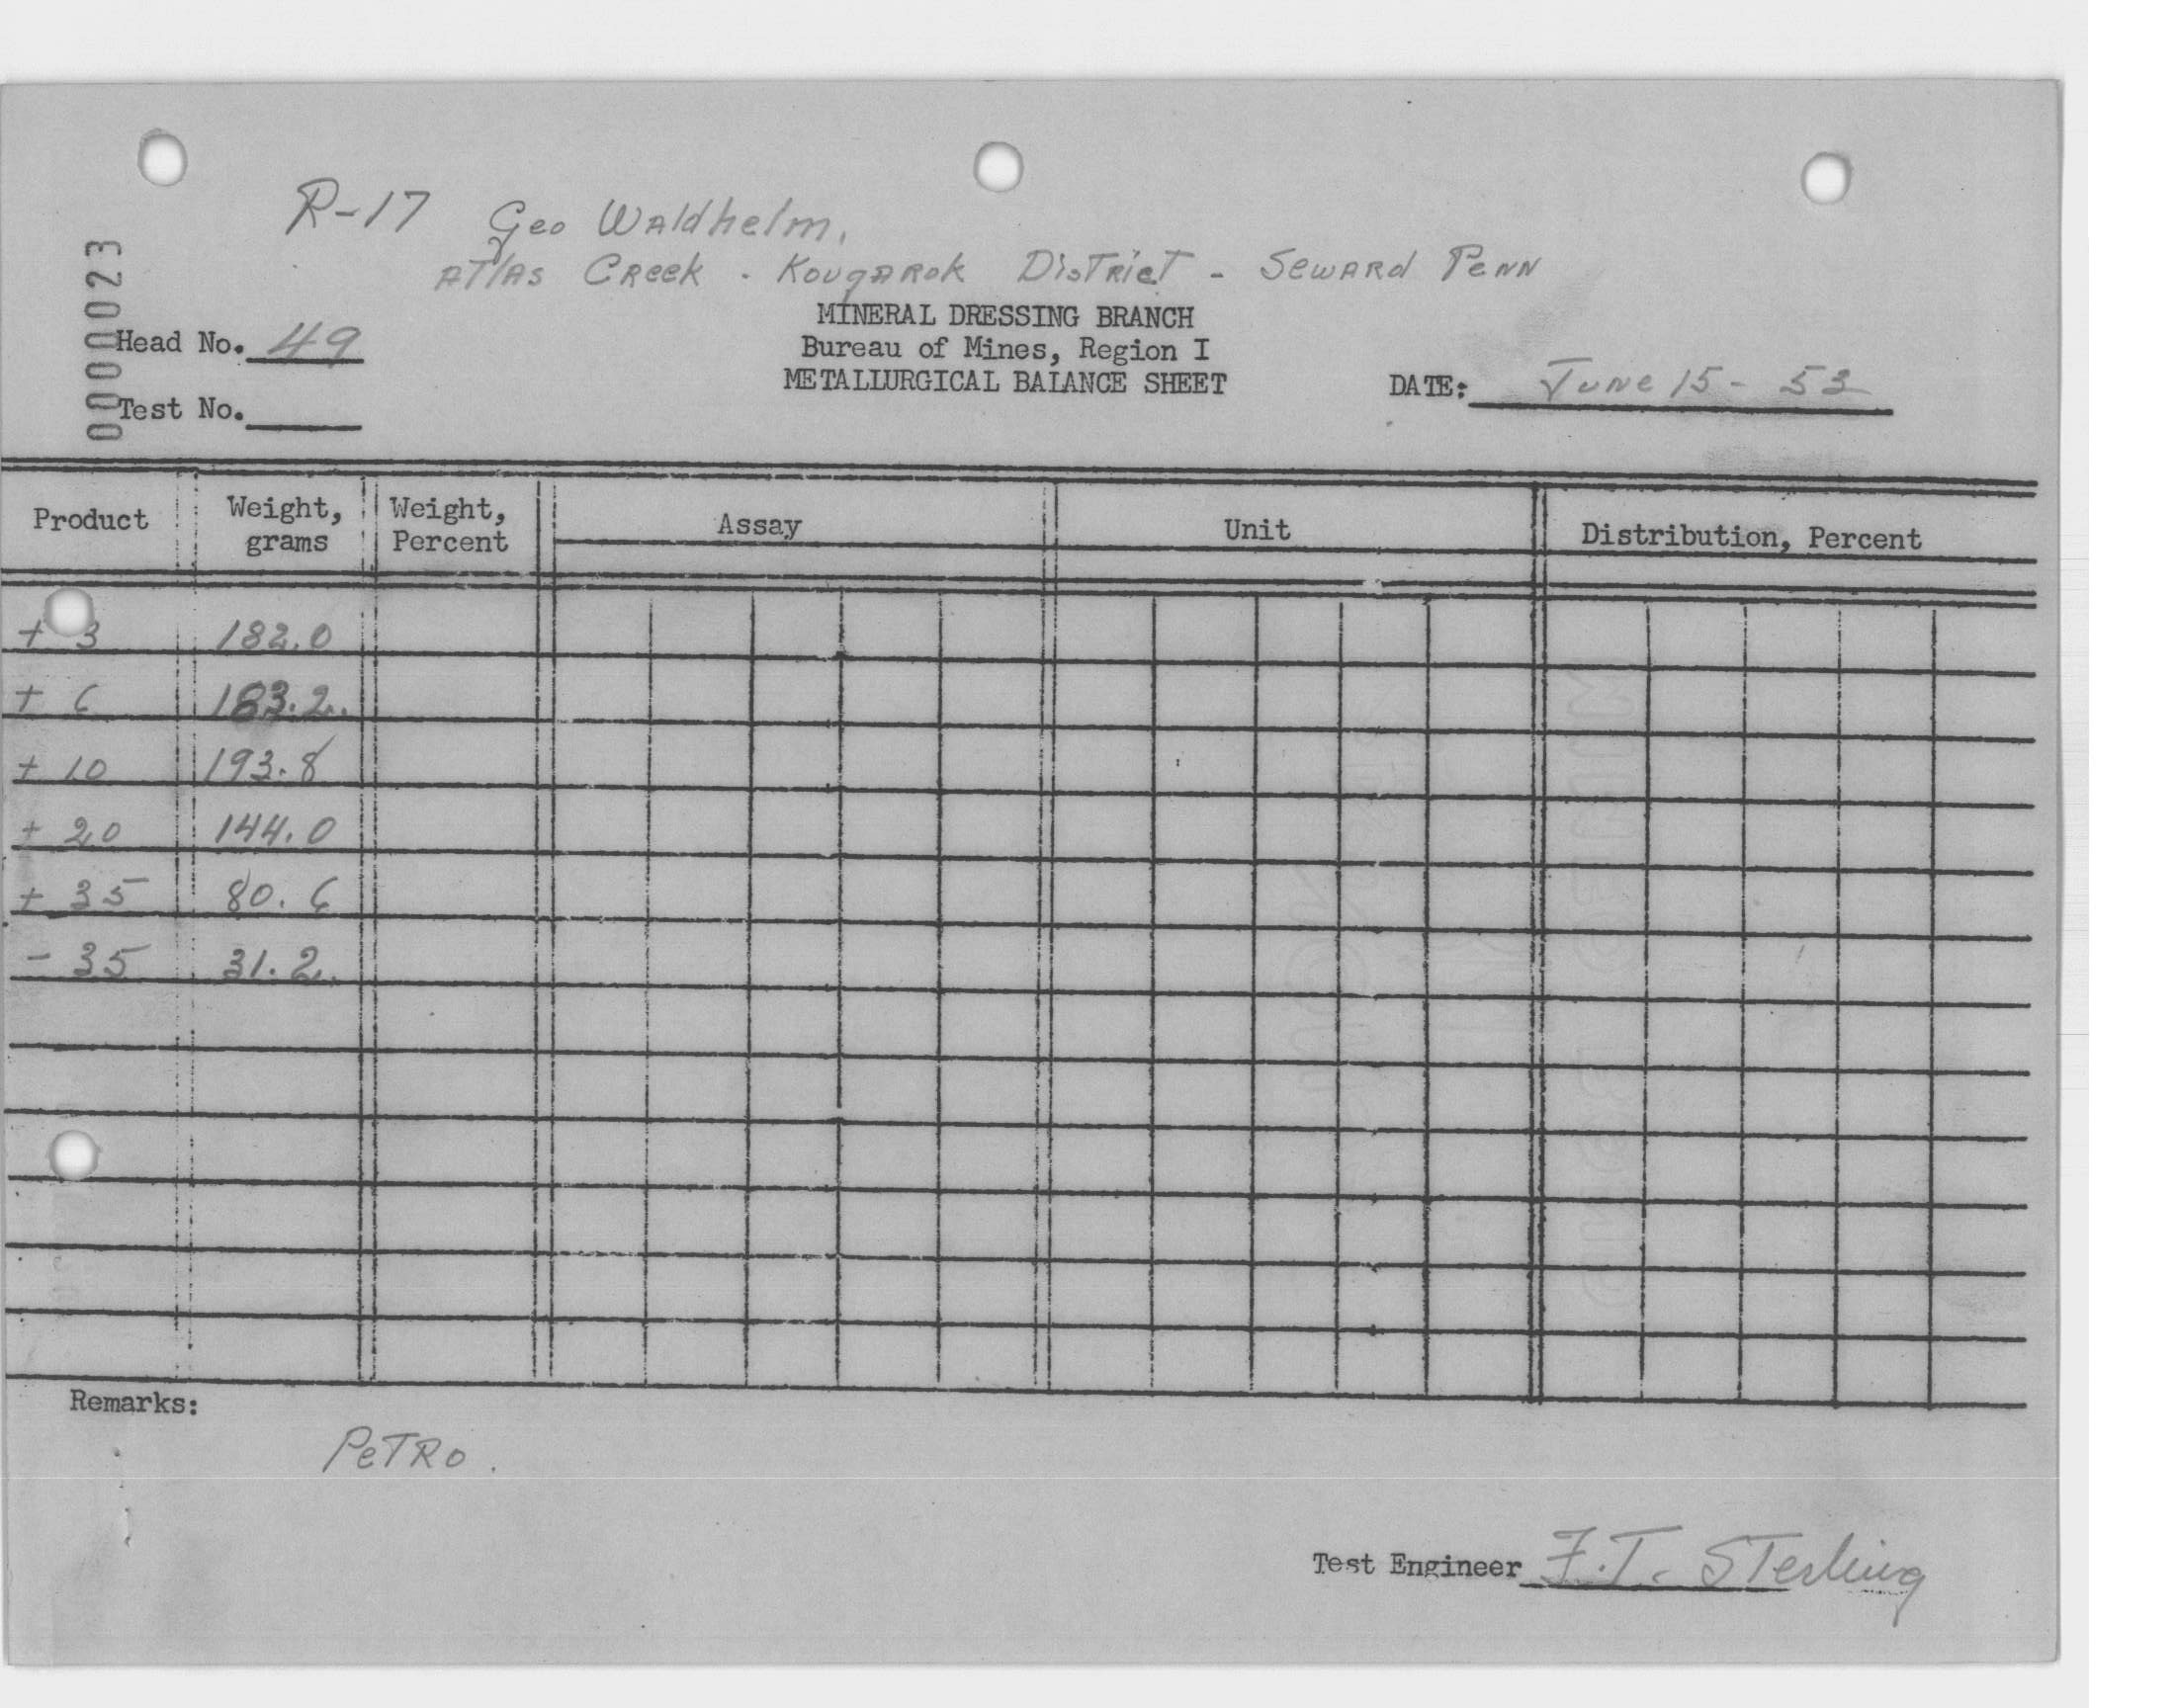 R-17 Geo Waldhelm,
Atlas Creek - Kougarok District - Seward Penn
0000023
MINERAL DRESSING BRANCH
Head No. 49
Bureau of Mines, Region I
METALLURGICAL BALANCE SHEET
DATE: June 15 - 53
Test No.
Product Weight, grams Weight, Percent Assay Unit Distribution, Percent
+ 3 182.0
+ 6 183.2
+ 10 193.8
+ 20 144.0
+ 35 80.6
- 35 31.2
Remarks:
Petro.
Test Engineer F.T. Sterling